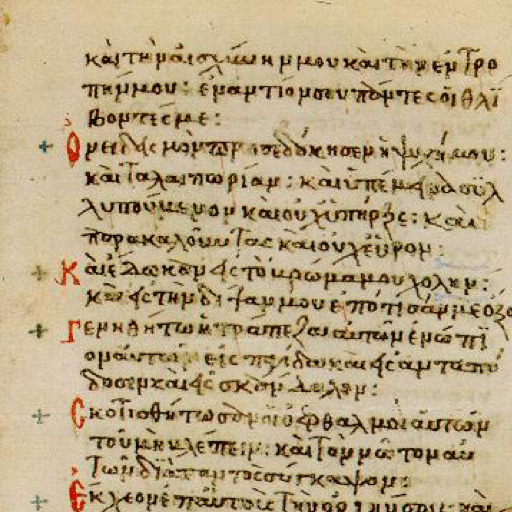 καὶ τὴν αἰσχύνην μου καὶ τὴν ἐντρο
πήν μου· ἐναντίον σου πάντες οἱ θλί
βοντές με:
Ὀνειδισμὸν προσεδόκησεν ἡ ψυχή μου:
καὶ ταλαιπωρίαν: καὶ ὑπέμεινα συλ
λυπούμενον καὶ οὐχ ὑπῆρξε: καὶ
παρακαλοῦντας καὶ οὐχ εὗρον:
Καὶ ἔδωκαν εἰς τὸ βρῶμά μου χολὴν:
καὶ εἰς τὴν δίψαν μου ἐπότισάν με ὄξο
Γενηθήτω ἡ τράπεζα αὐτῶν ἐνώπι
ον αὐτῶν εἰς παγίδα καὶ εἰς ἀνταπό
δοσιν καὶ εἰς σκάνδαλον:
Σκοτισθήτωσαν οἱ ὀφθαλμοὶ αὐτῶν
τοῦ μὴ βλέπειν: καὶ τὸν νῶτον αὐ
τῶν διὰ παντὸς σύγκαμψον:
Ἔκχεον ἐπ' αὐτοὺς τὴν ὀργήν σου: καὶ